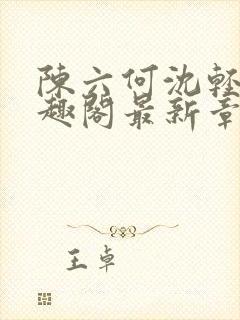 陳六何沈輕
趣閣最新章
王卓